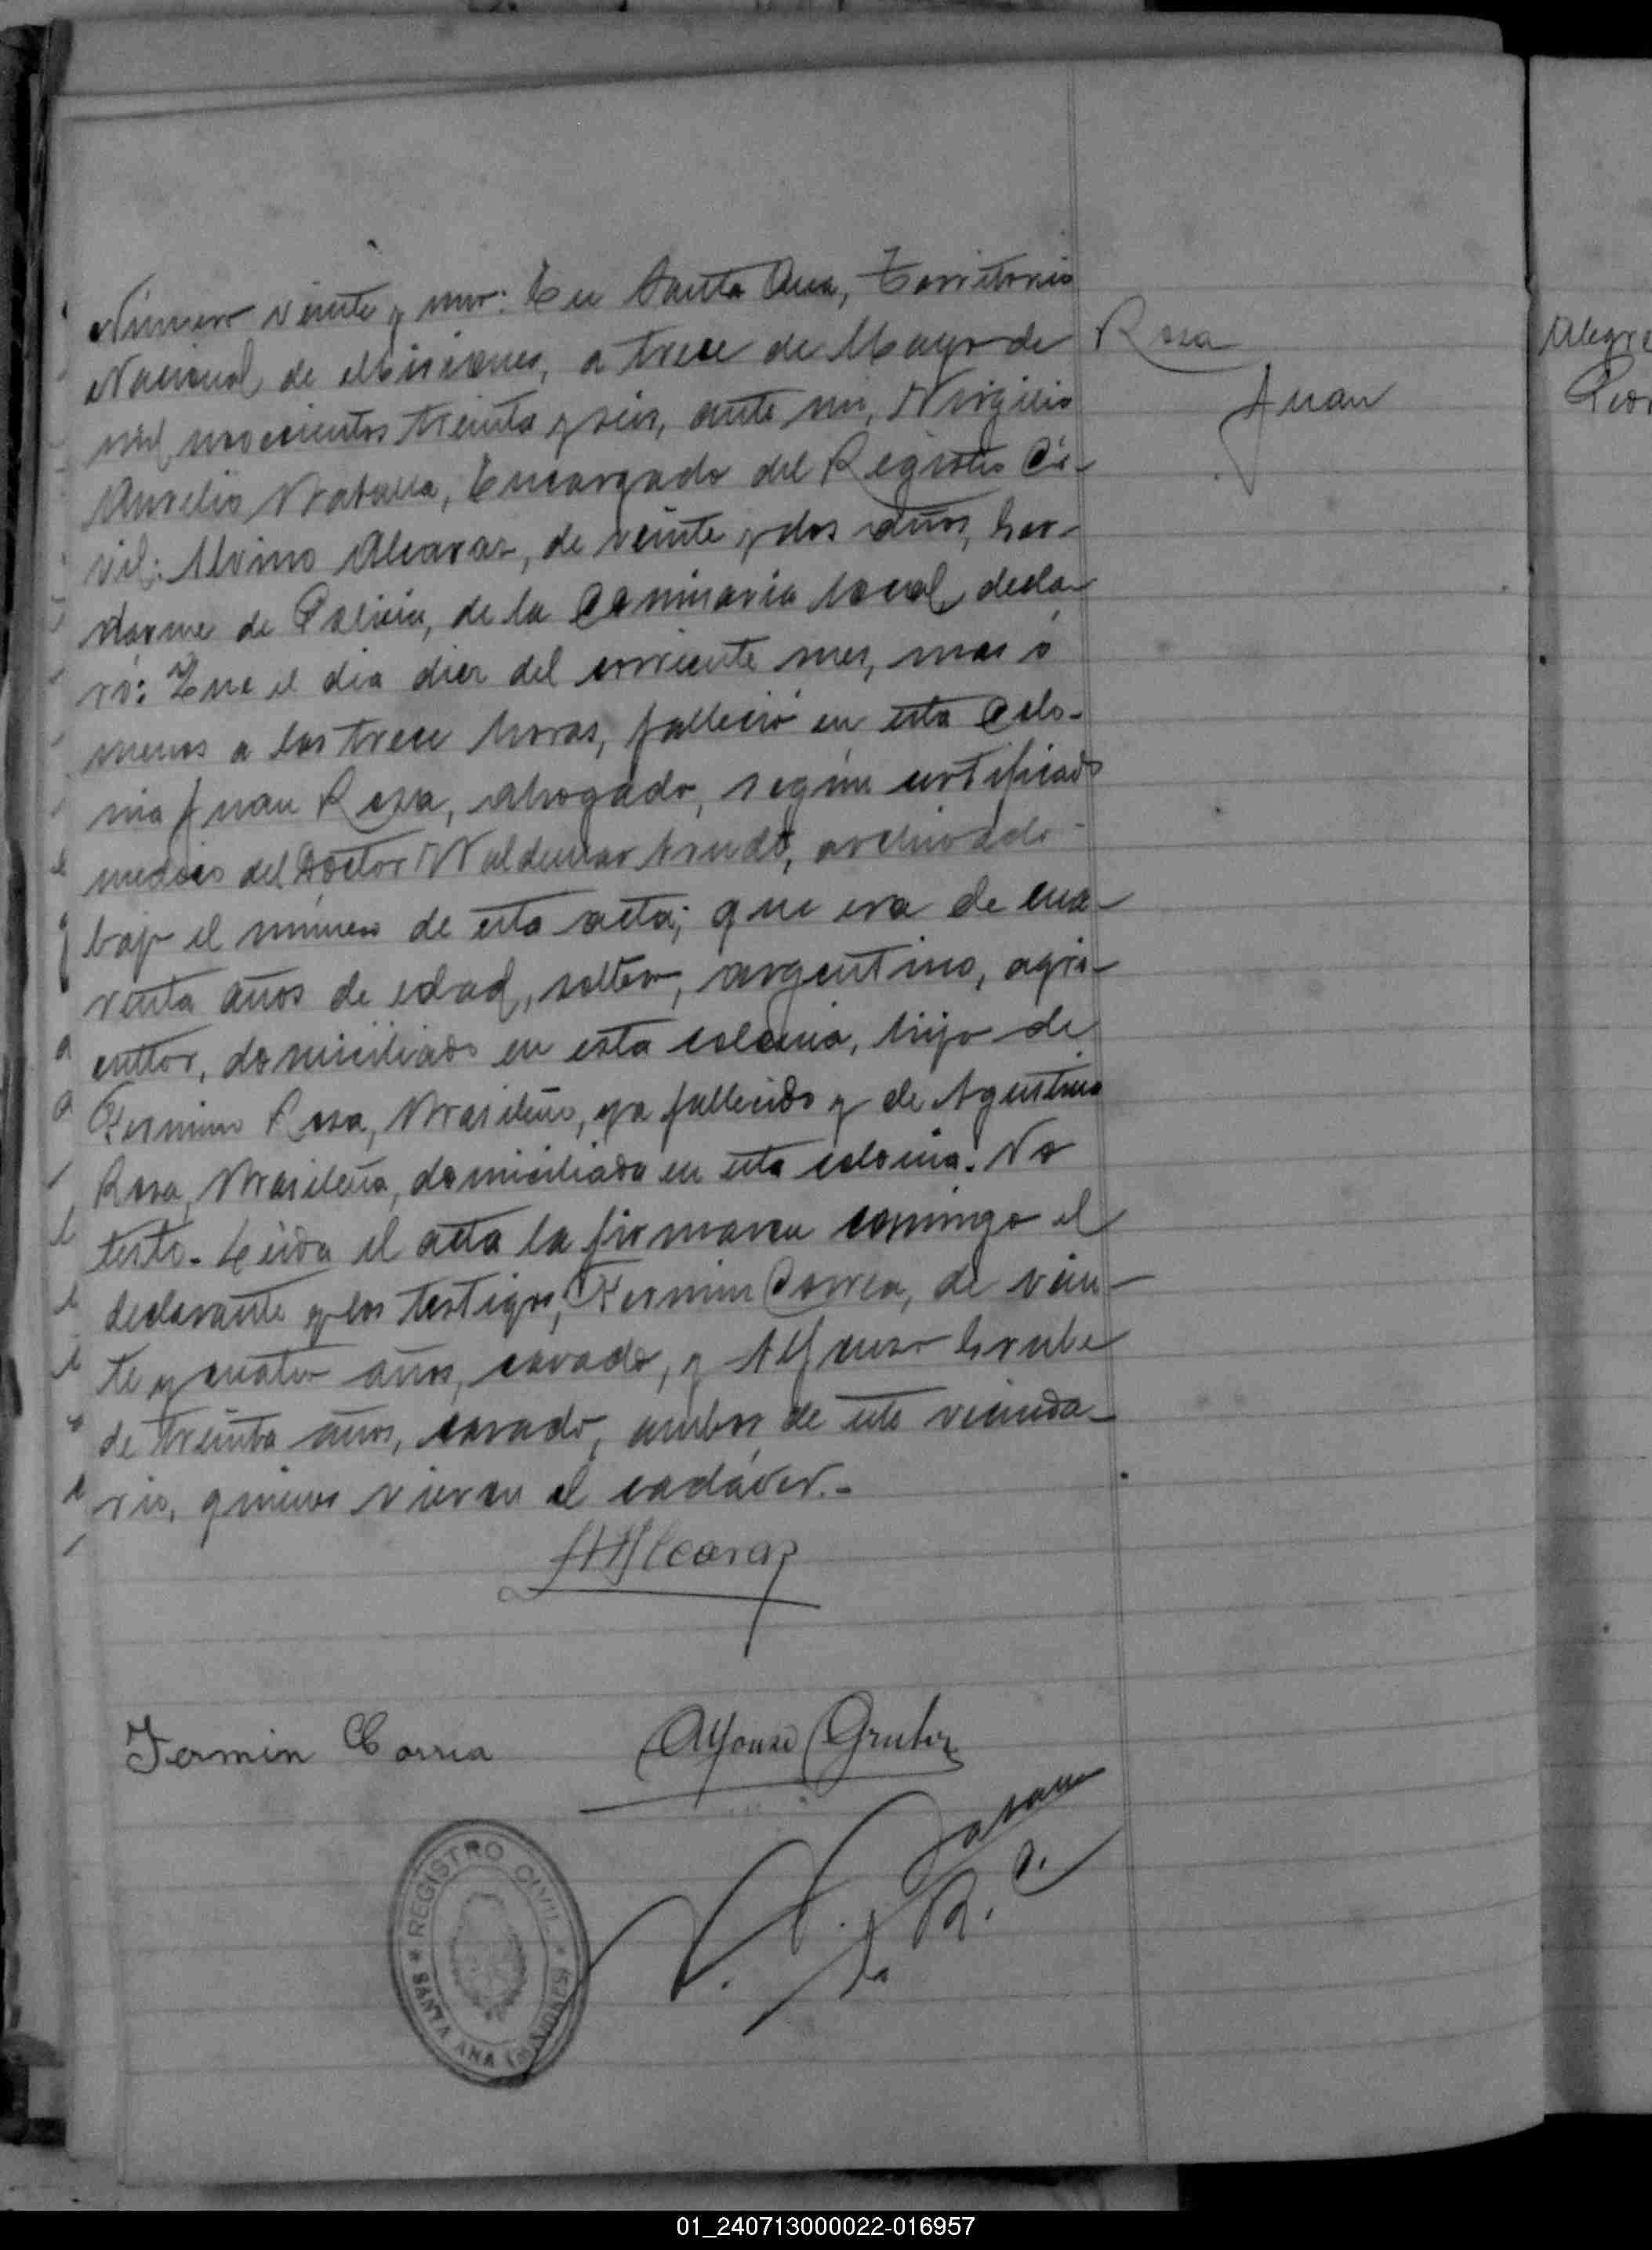 Número veinte y uno: En Santa Ana, Territorio
Nacional de Misiones, a trece de Mayo de
mil novecientos treinta y seis, ante mi, Virgilio
Aurelio, Encargado del Registro Ci-
vil: Alvino Alcaraz, de veinte y dos años, Gen-
darme de Policia, de la Comisaria local, decla-
ró: Que el dia diez del corriente mes, mas ó
menos a las trece horas, falleció en esta Colo-
nia Juan Rosa, ahogado, según certificado
medico del Doctor Waldemar, archivado
bajo el número de esta acta; que era de cua-
renta años de edad, soltero, argentino, agri-
cultor, domiciliado en esta colonia, hijo de
Fermino Rosa, Brasileño, ya fallecido y de Agustina
Rosa, Brasileña, domiciliada en esta colonia. No
testó.- Leida el acta la firmaron conmigo el
declarante y los testigos, Fermin Correa, de vein-
te y cuatro años, casado, y Alfonso Grube
de treinta años, casado, ambos de este vecinda-
rio, quienes vieron el cadáver.-
Rosa
Juan
Alegre
AAlcaraz
Fermin Correa
Alfonso Gruber
R. C.
REGISTRO CIVIL
SANTA ANA (MISIONES)
01_240713000022-016957